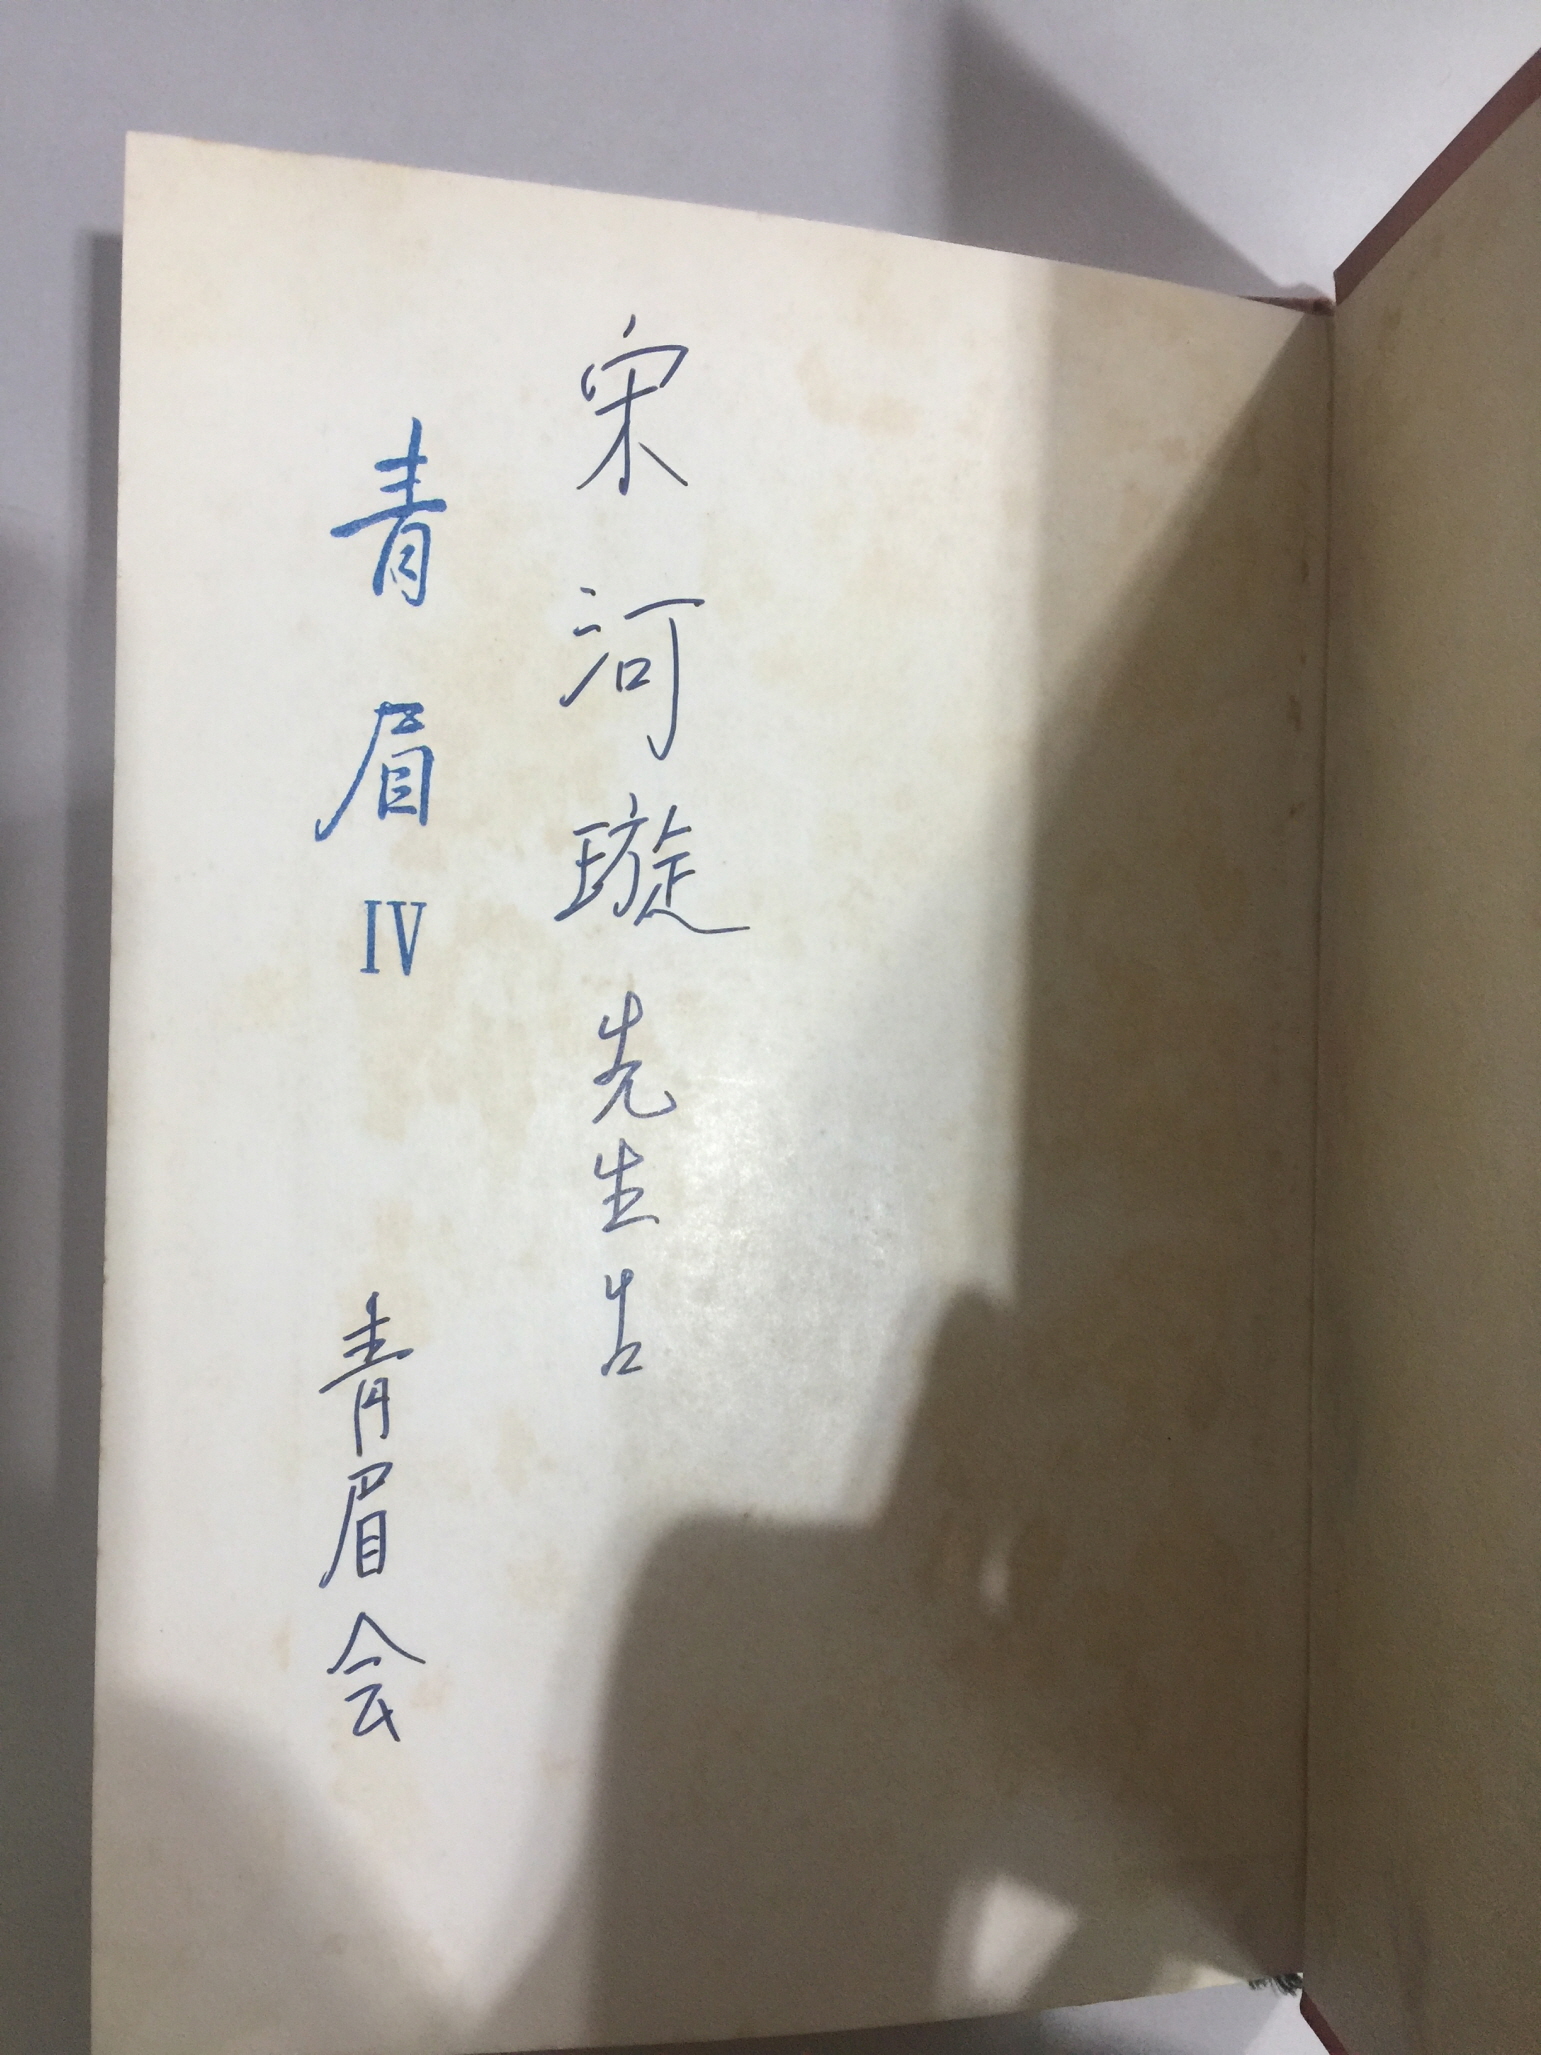 宋河璇先生告
青眉 IV 青眉会